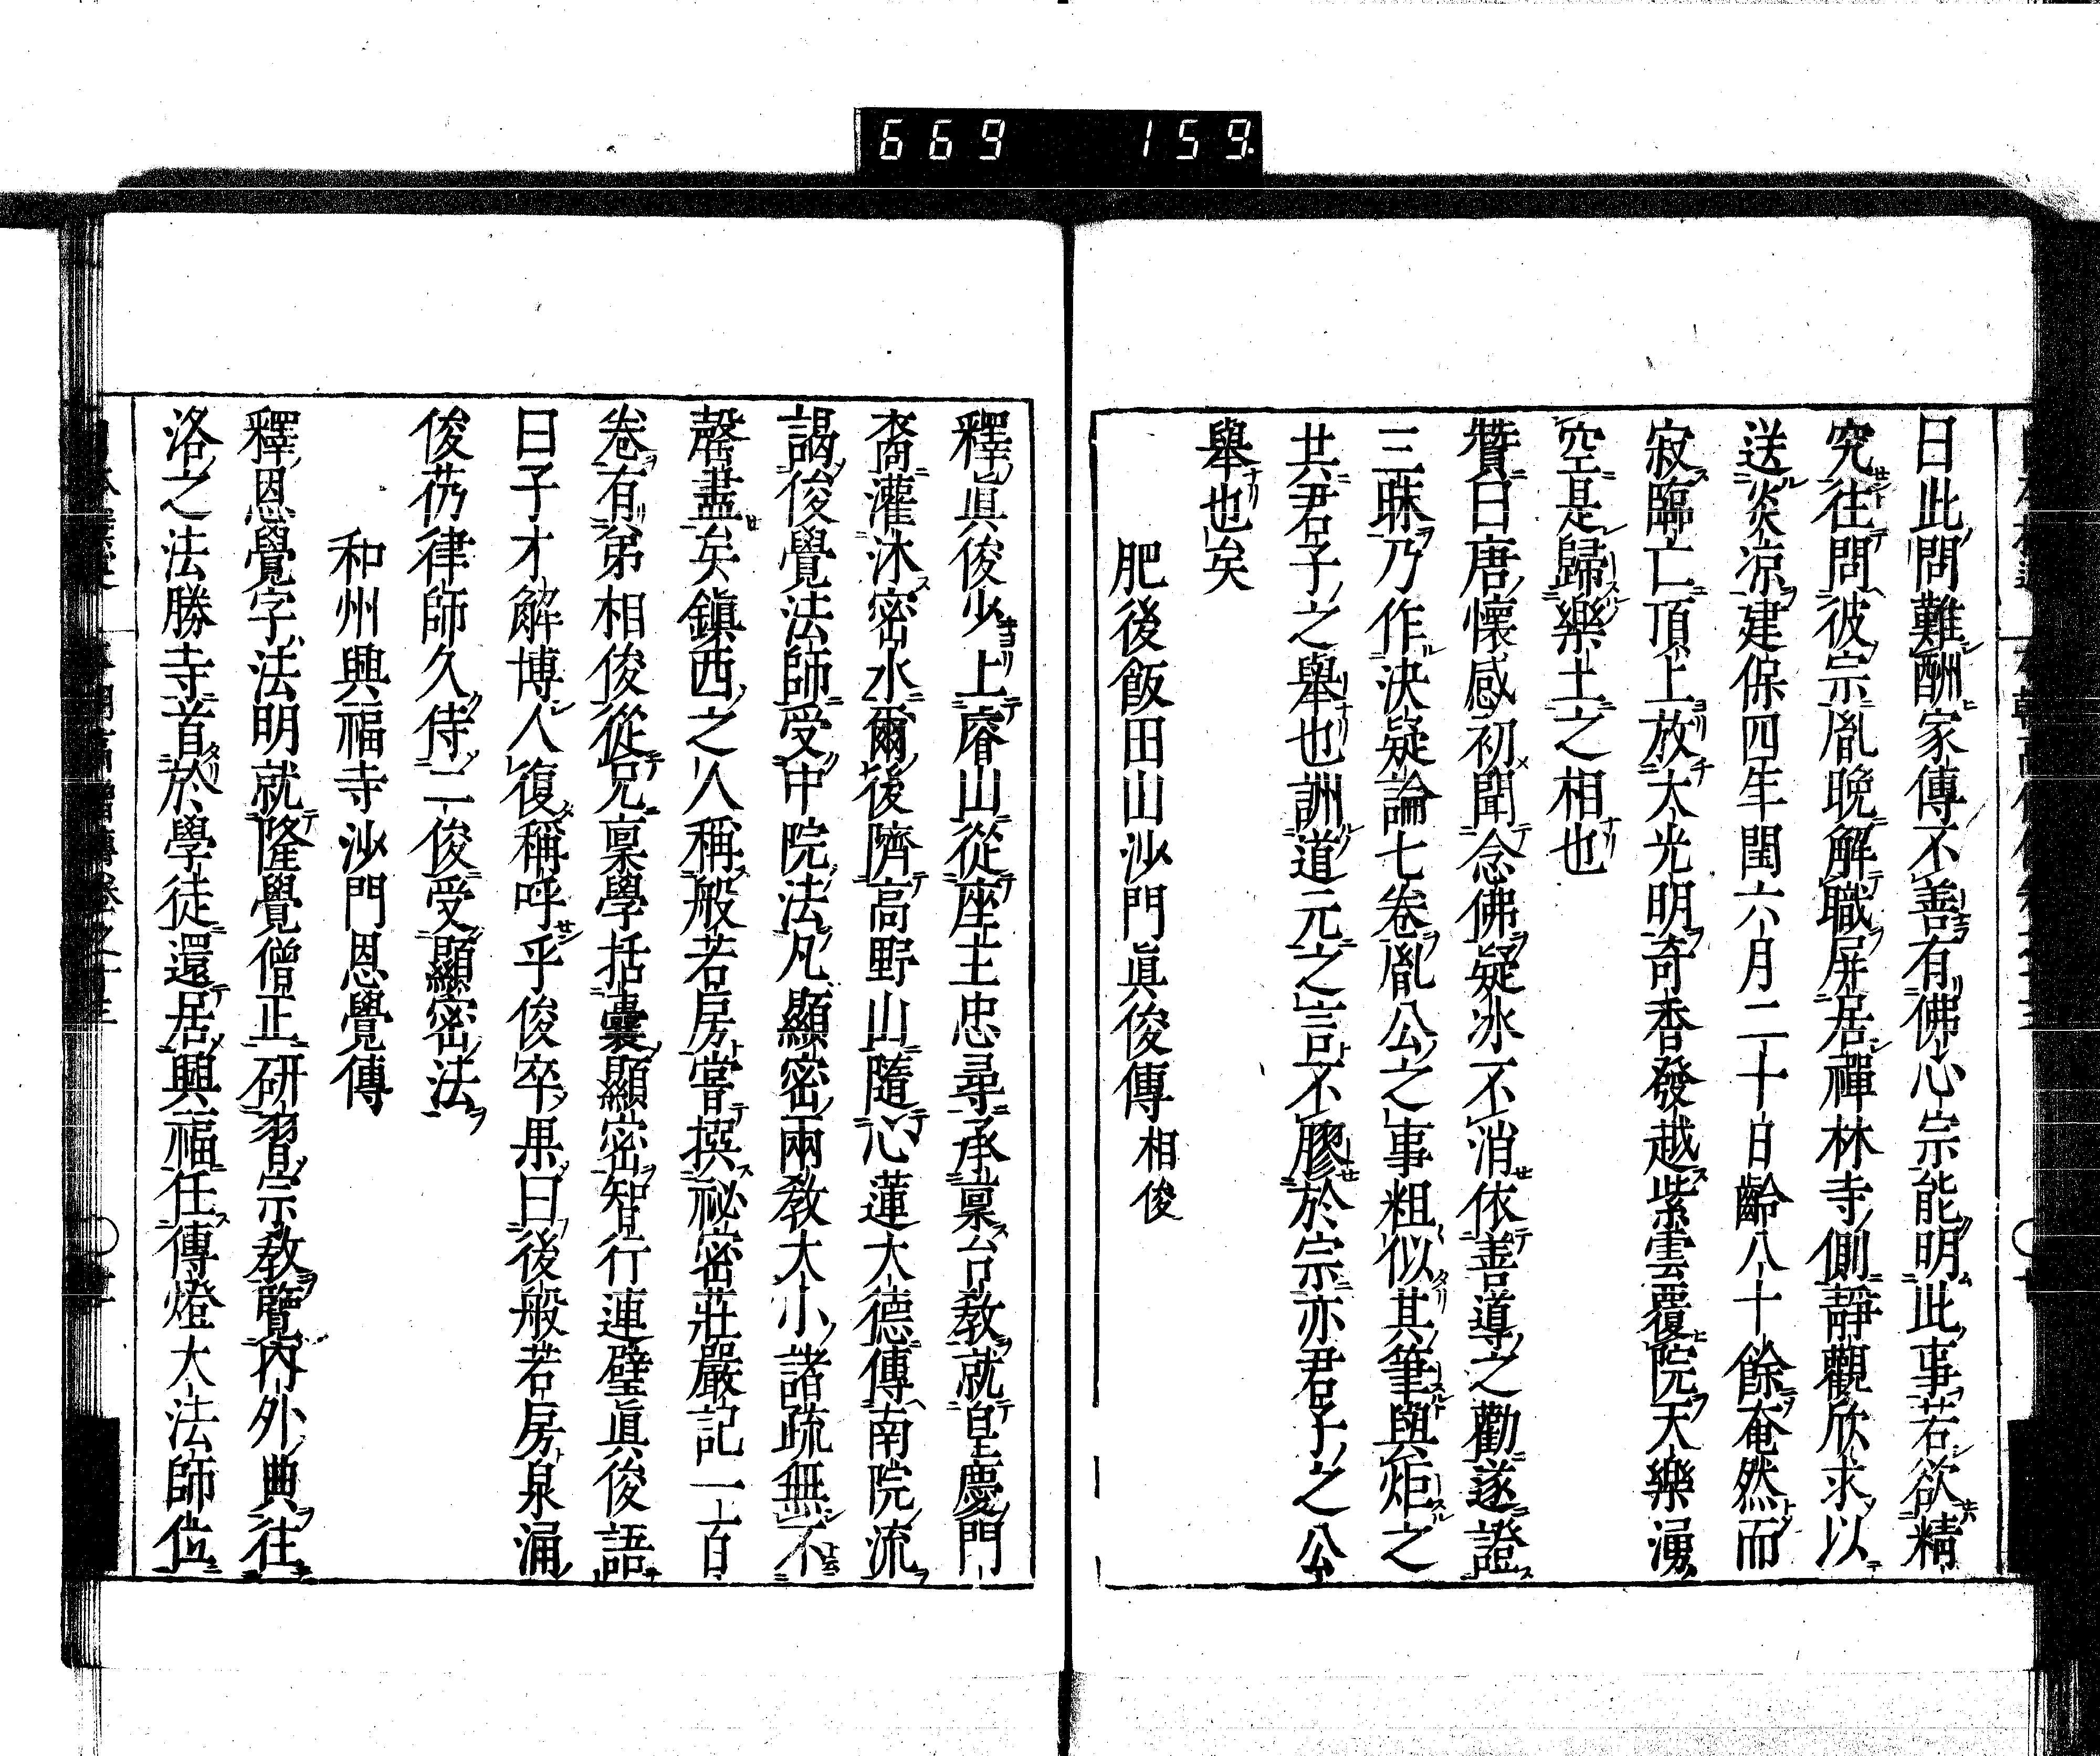 669 159.
曰此問難酬家傳不善有佛心宗能明此事若欲精
究往問彼宗胤晩解職屏居禪林寺側靜觀欣求以
送炎涼建保四年閏六月二十日齡八十餘奄然而
寂臨亡頂上放大光明奇香發越紫雲覆院天樂湧
空是歸樂土之相也
贊曰唐懷感初聞念佛疑氷不消依善導之勸遂證
三昧乃作決疑論七卷胤公之事粗似其筆與炬之
共君子之舉也詶道元之言不膠於宗亦君子之公
舉也矣
肥後飯田山沙門眞俊傳相俊
釋眞俊少上睿山從座主忠尋承稟台教就皇慶門
裔灌沐密水爾後隮高野山隨心蓮大德傳南院流
謁俊覺法師受中院法凡顯密兩教大小諸疏無不
罄盡矣鎭西之人稱般若房嘗撰祕密莊嚴記一百
卷有弟相俊從兄稟學括囊顯密智行連璧眞俊語
曰子才解博人復稱呼乎俊卒果曰後般若房泉涌
俊芿律師久侍二俊受顯密法
和州興福寺沙門恩覺傳
釋恩覺字法明就隆覺僧正研習宗教覽內外典往
洛之法勝寺首於學徒還居興福任傳燈大法師位